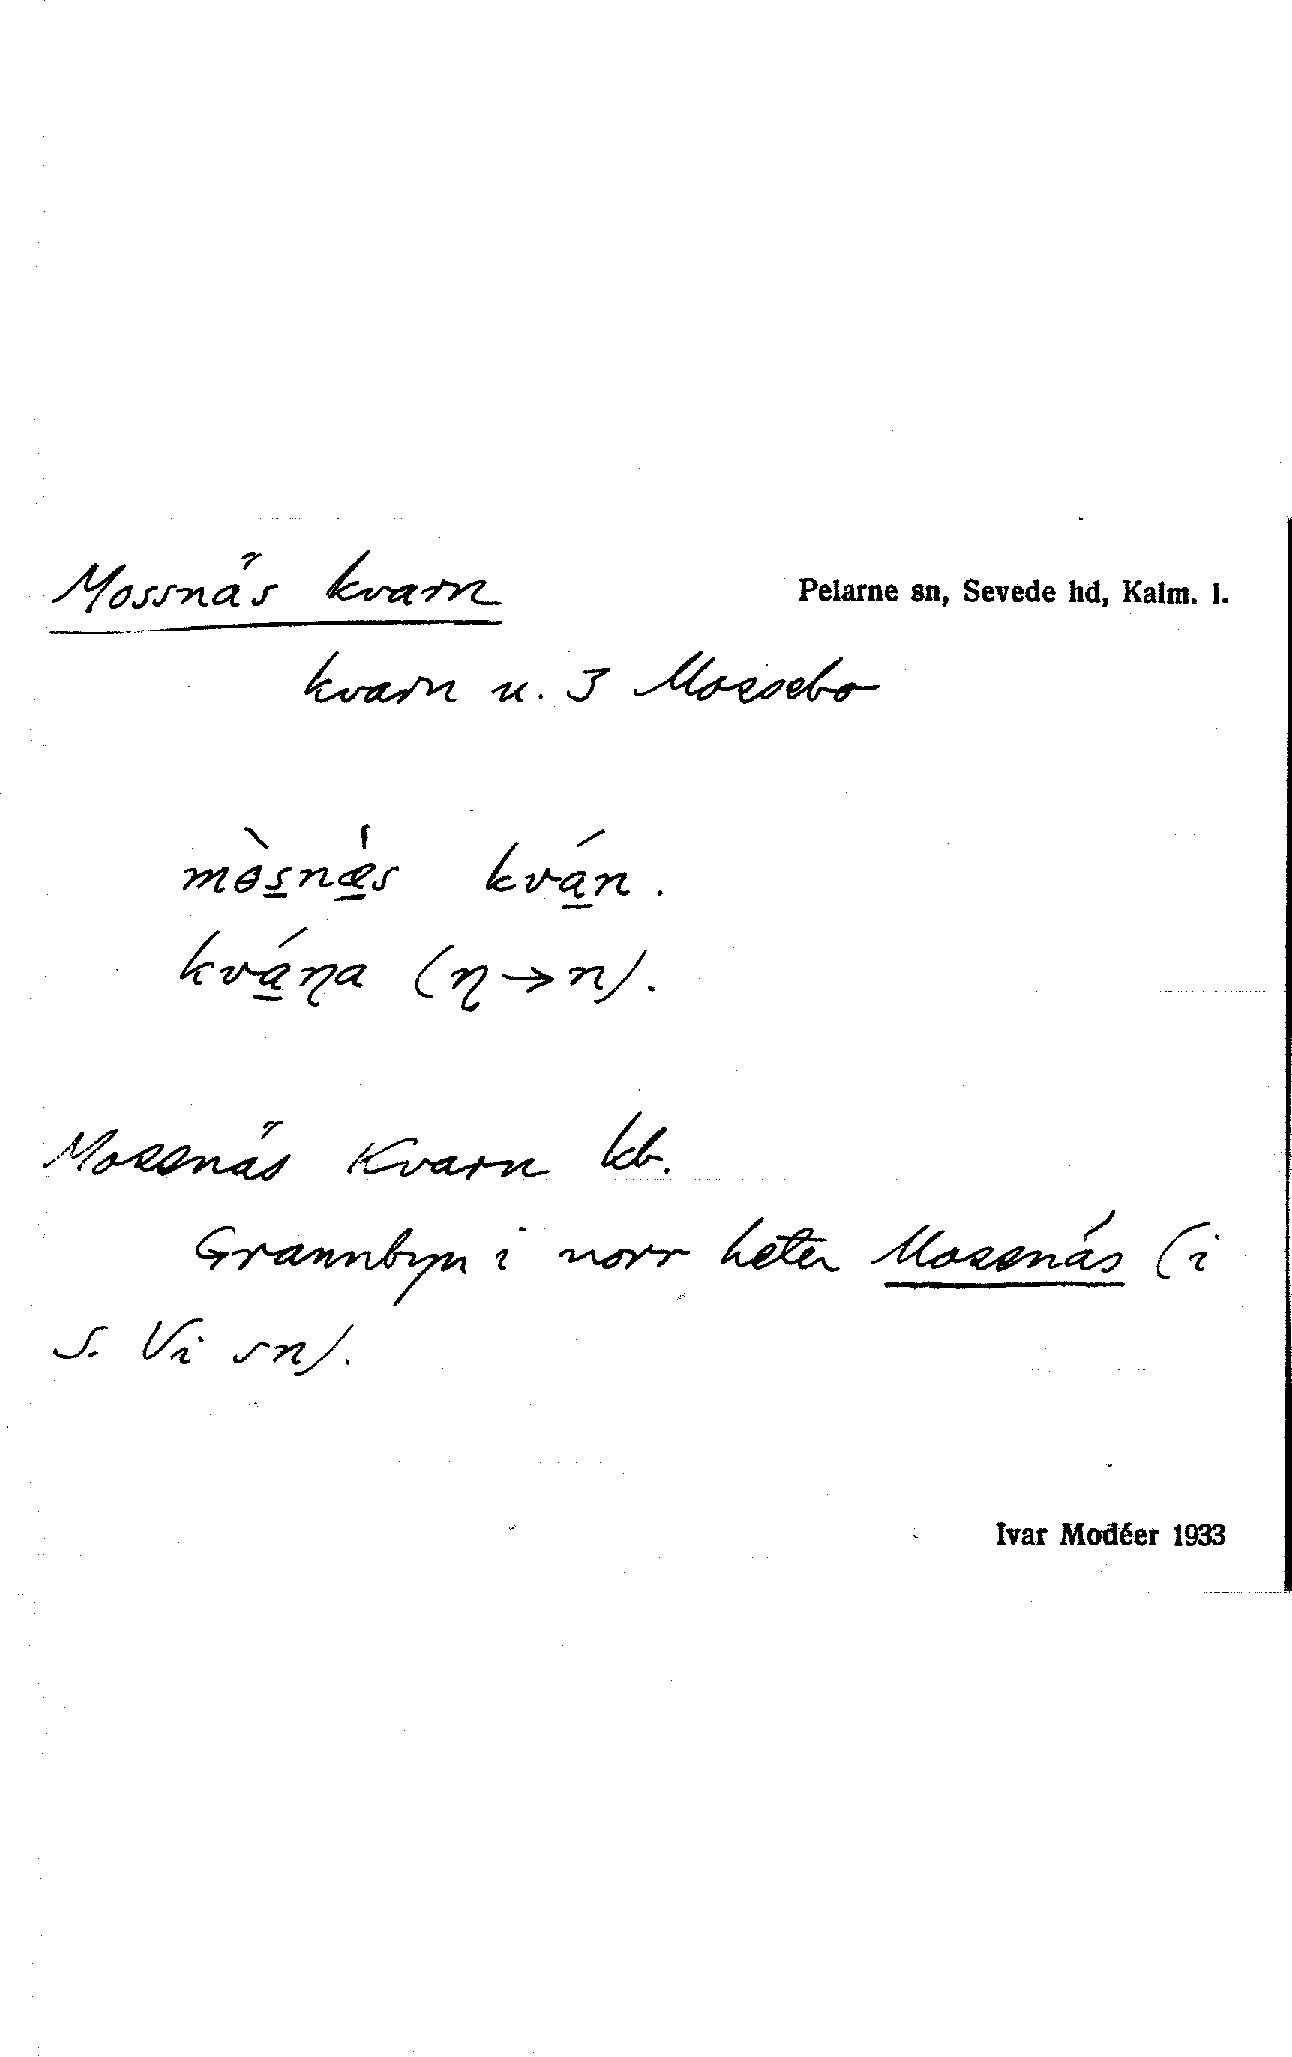 Mossnäs kvarn
Pelarne sn, Sevede hd, Kalm. l.
kvarn u. 3 Mossebo
mɵ̀s̲næ̲̍s kvá̲n.
kvá̲ŋa (ŋ→n).
Mossnäs Kvarn kb.
Grannbyn i norr heter Mossnäs (i
S. Vi sn).
Ivar Modéer 1933